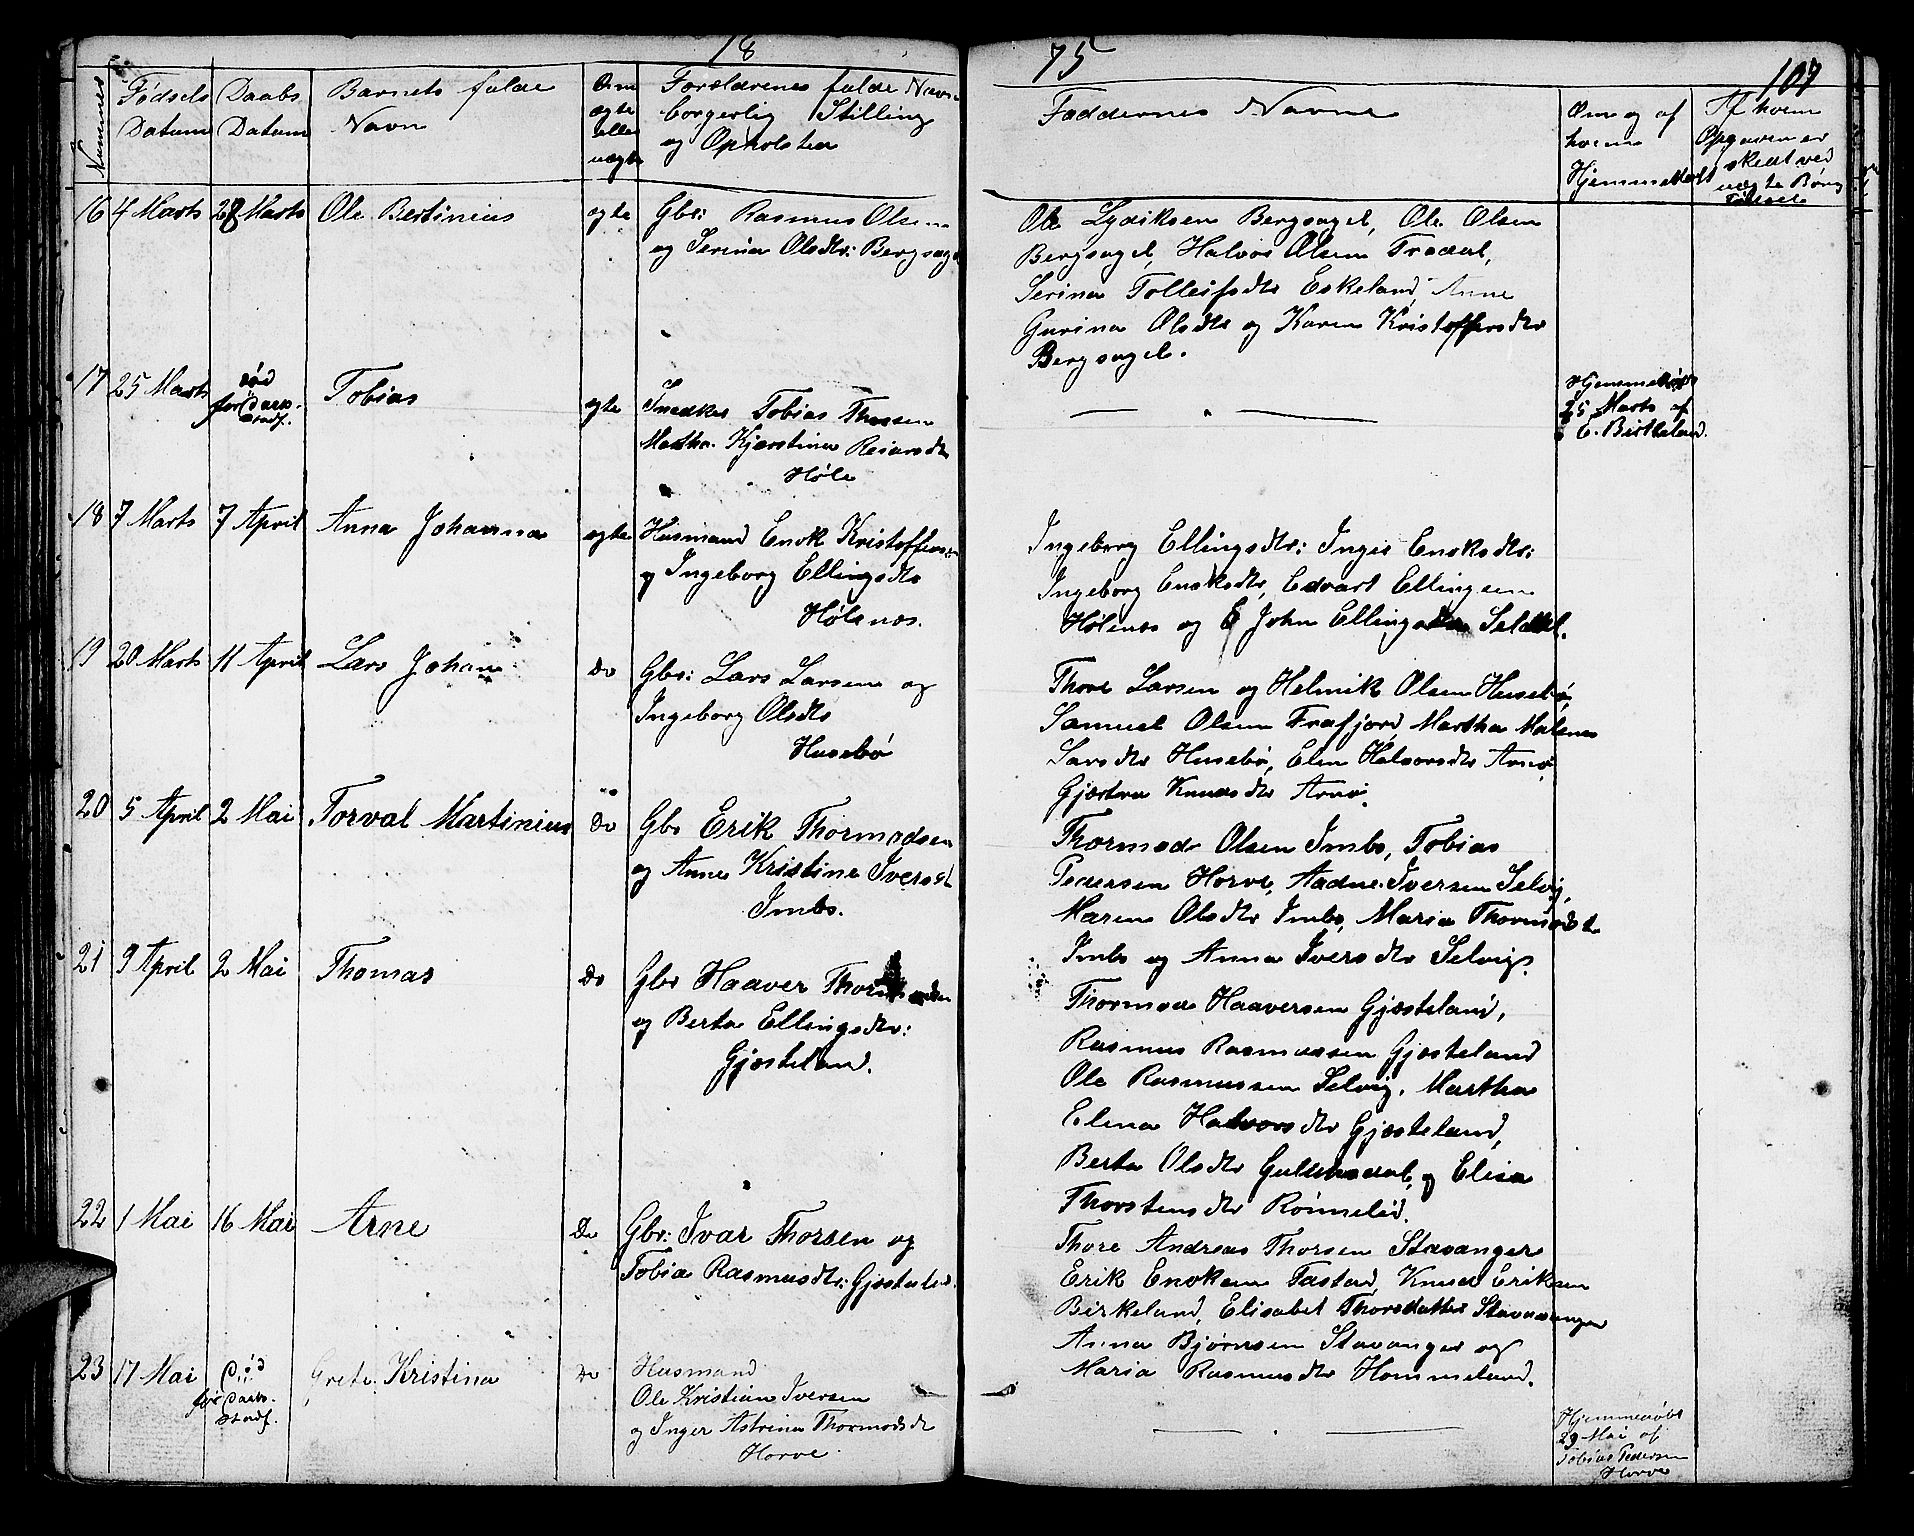 18
75
107
Nummer
Fødsels Datum
Daabs Datum
Barnets fulde Navn
Om ægte eller uægte
Forældrenes fulde Navn
borgerlig Stilling
og Opholsted
Faddernes Navne
Om og af
hvem
Hjemmedøbt
Af hvem
Opgaven er
skedt ved
uægte Børns
Fødsel
16 4 Marts 28 Marts Ole Bertinius ægte Gbr: Rasmus Olsen
og Serina Olsdtr: Bergsagel
Ole Lydiksen Bergsagel, Ole Olsen
Bergsagel, Halvor Olsen Tradal,
Serina Tolleifsdtr Eskeland, Anne
Gurina Olsdtr og Karen Kristoffersdtr
Bergsagel.
17 25 Marts død
for Daabs
stadf.
Tobias ægte Snedker Tobias Thorsen
Martha Kjerstina Reiarsdtr
Høle
Hjemmedøbt
25 Marts af
E. Birkeland.
18 7 Marts 7 April Anna Johanna ægte Husmand Enok Kristoffersen
og Ingeborg Ellingsdtr
Hølenæs.
Ingeborg Ellingsdtr: Inger Enoksdtr:
Ingeborg Enoksdtr, Edvart Ellingsen
Hølenæs og John Ellingsen Seldal.
19 20 Marts 11 April Lars Johan Do Gbr: Lars Larsen og
Ingeborg Olsdtr
Husebø
Thore Larsen og Helmik Olsen Husebø,
Samuel Olsen Frafjord, Martha Malene
Larsdtr Husebø, Elen Halvorsdtr
Gjertra Knudsdtr
20 5 April 2 Mai Torval Martinius Do Gbr Erik Thormodsen
og Anne Kristine Iversdt
Imbs.
Thormod Olsen Imbs, Tobias
Pedersen Horve, Aadne Iversen Selvig,
Maren Olsdtr Imbs, Maria Thormodsdt
Imbs og Anna Iversdtr Selvig.
21 9 April 2 Mai Thomas Do Gbr Haaver Thormodsen
og Berta Ellingsdtr:
Gjesteland.
Thormod Haaversen Gjesteland,
Rasmus Rasmussen Gjesteland
Ole Rasmussen Selvig, Martha
Elena Halvorsdtr Gjesteland,
Berta Olsdtr og Elisa
Thorstensdtr Rømmelid.
22 1 Mai 16 Mai Arne Do Gbr: Ivar Thorsen og
Tobia Rasmusdtr: Gjesteland.
Thore Andreas Thorsen Stavanger
Erik Enoksen Tastad, Knud Eriksen
Birkeland, Elisabet Thorsdatter Stavanger
Anna Bjørnsen Stavanger og
Maria Rasmusdtr Hommeland.
23 17 Mai Død
før Daabs
stadf.
Grete Kristina Do Husmand
Ole Kristian Iversen
og Inger Astrina Thormodsdt
Horve
Hjemmedøbt
29 Mai af
Tobias Pedersen
Horve